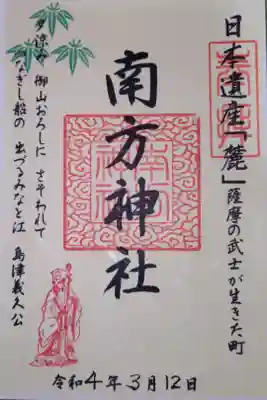 日本遺産「麓」薩摩の武士が生きた町
南方神社
夕涼み 御山おろしに さそわれて
つなぎし船の 出づるみなと江
島津義久公
令和4年3月12日